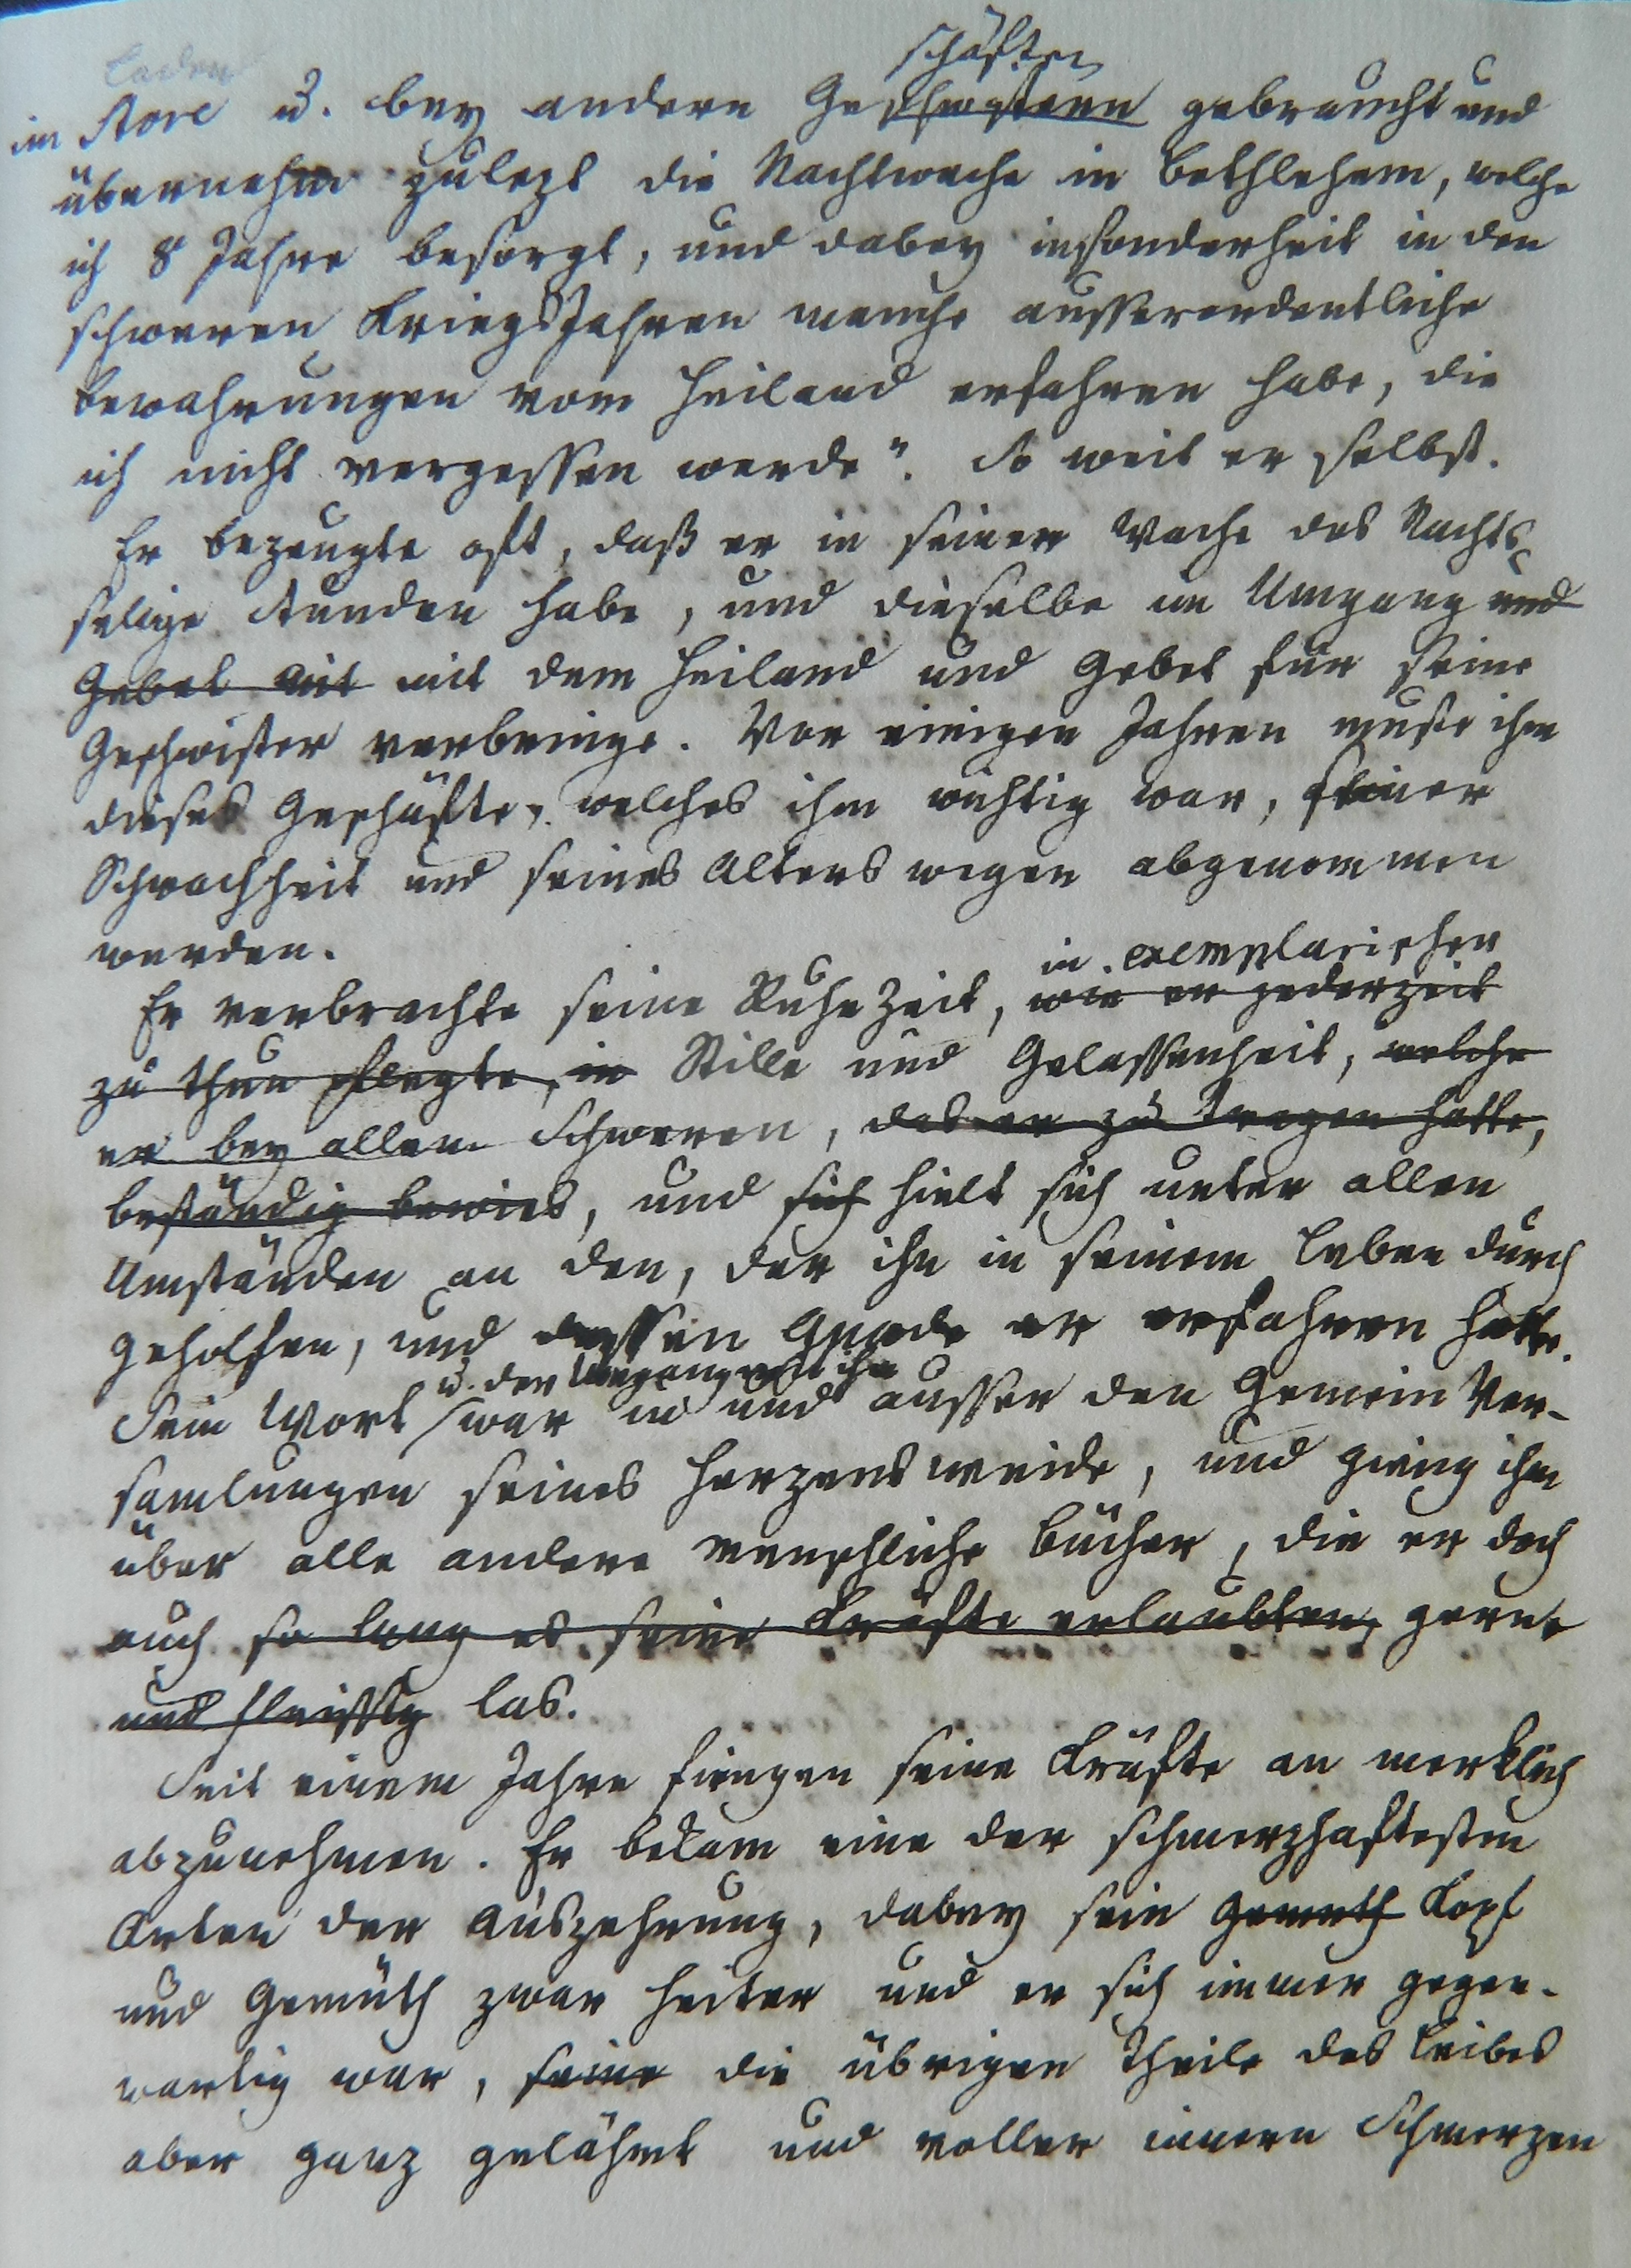 Laden
schäften
im Store u. bey andern Geschwistern gebraucht und
übernahm zulezt die Nachtwache in Bethlehem, welche
ich 8 Jahre besorgt, und dabey insonderheit in den
schweren KriegsJahren manche ausserordentliche
Bewahrungen vom Heiland erfahren habe, die
ich nicht vergessen werde". So weit er selbst.
Er bezeugte oft, daß er in seiner Wache des Nachts
selige Stunden habe, und dieselbe im Umgang und
Gebet mit mit dem Heiland und Gebet für seine
Geschwister verbringe. Vor einigen Jahren muste ihm
dieses Geschäfte, welches ihm wichtig war, seiner
Schwachheit und seines Alters wegen abgenommen
werden.
in exemplarischer
Er verbrachte seine RuheZeit, wie er jederzeit
zu thun pflegte, in Stille und Gelassenheit, welche
er bey allem Schweren, das er zu tragen hatte,
beständig bewies, und sich hielt sich unter allen
Umständen an den, der ihn in seinem Leben durch
geholfen, und dessen Gnade er erfahren hatte.
u. der Umgang mit ihm
Sein Wort war in und ausser den Gemein Ver-
samlungen seines Herzens weide, und gieng ihm
über alle andere menschliche Bücher, die er doch
auch so lang es seine Kräfte erlaubten, gerne
und fleissig las.
Seit einem Jahre fiengen seine Kräfte an merklich
abzunehmen. Er bekam eine der schmerzhaftesten
Arten der Auszehrung, dabey sein Gemüth Kopf
und Gemüth zwar heiter und er sich immer gegen-
wärtig war, seine die übrigen Theile des Leibes
aber ganz gelähmt und voller innern Schmerzen